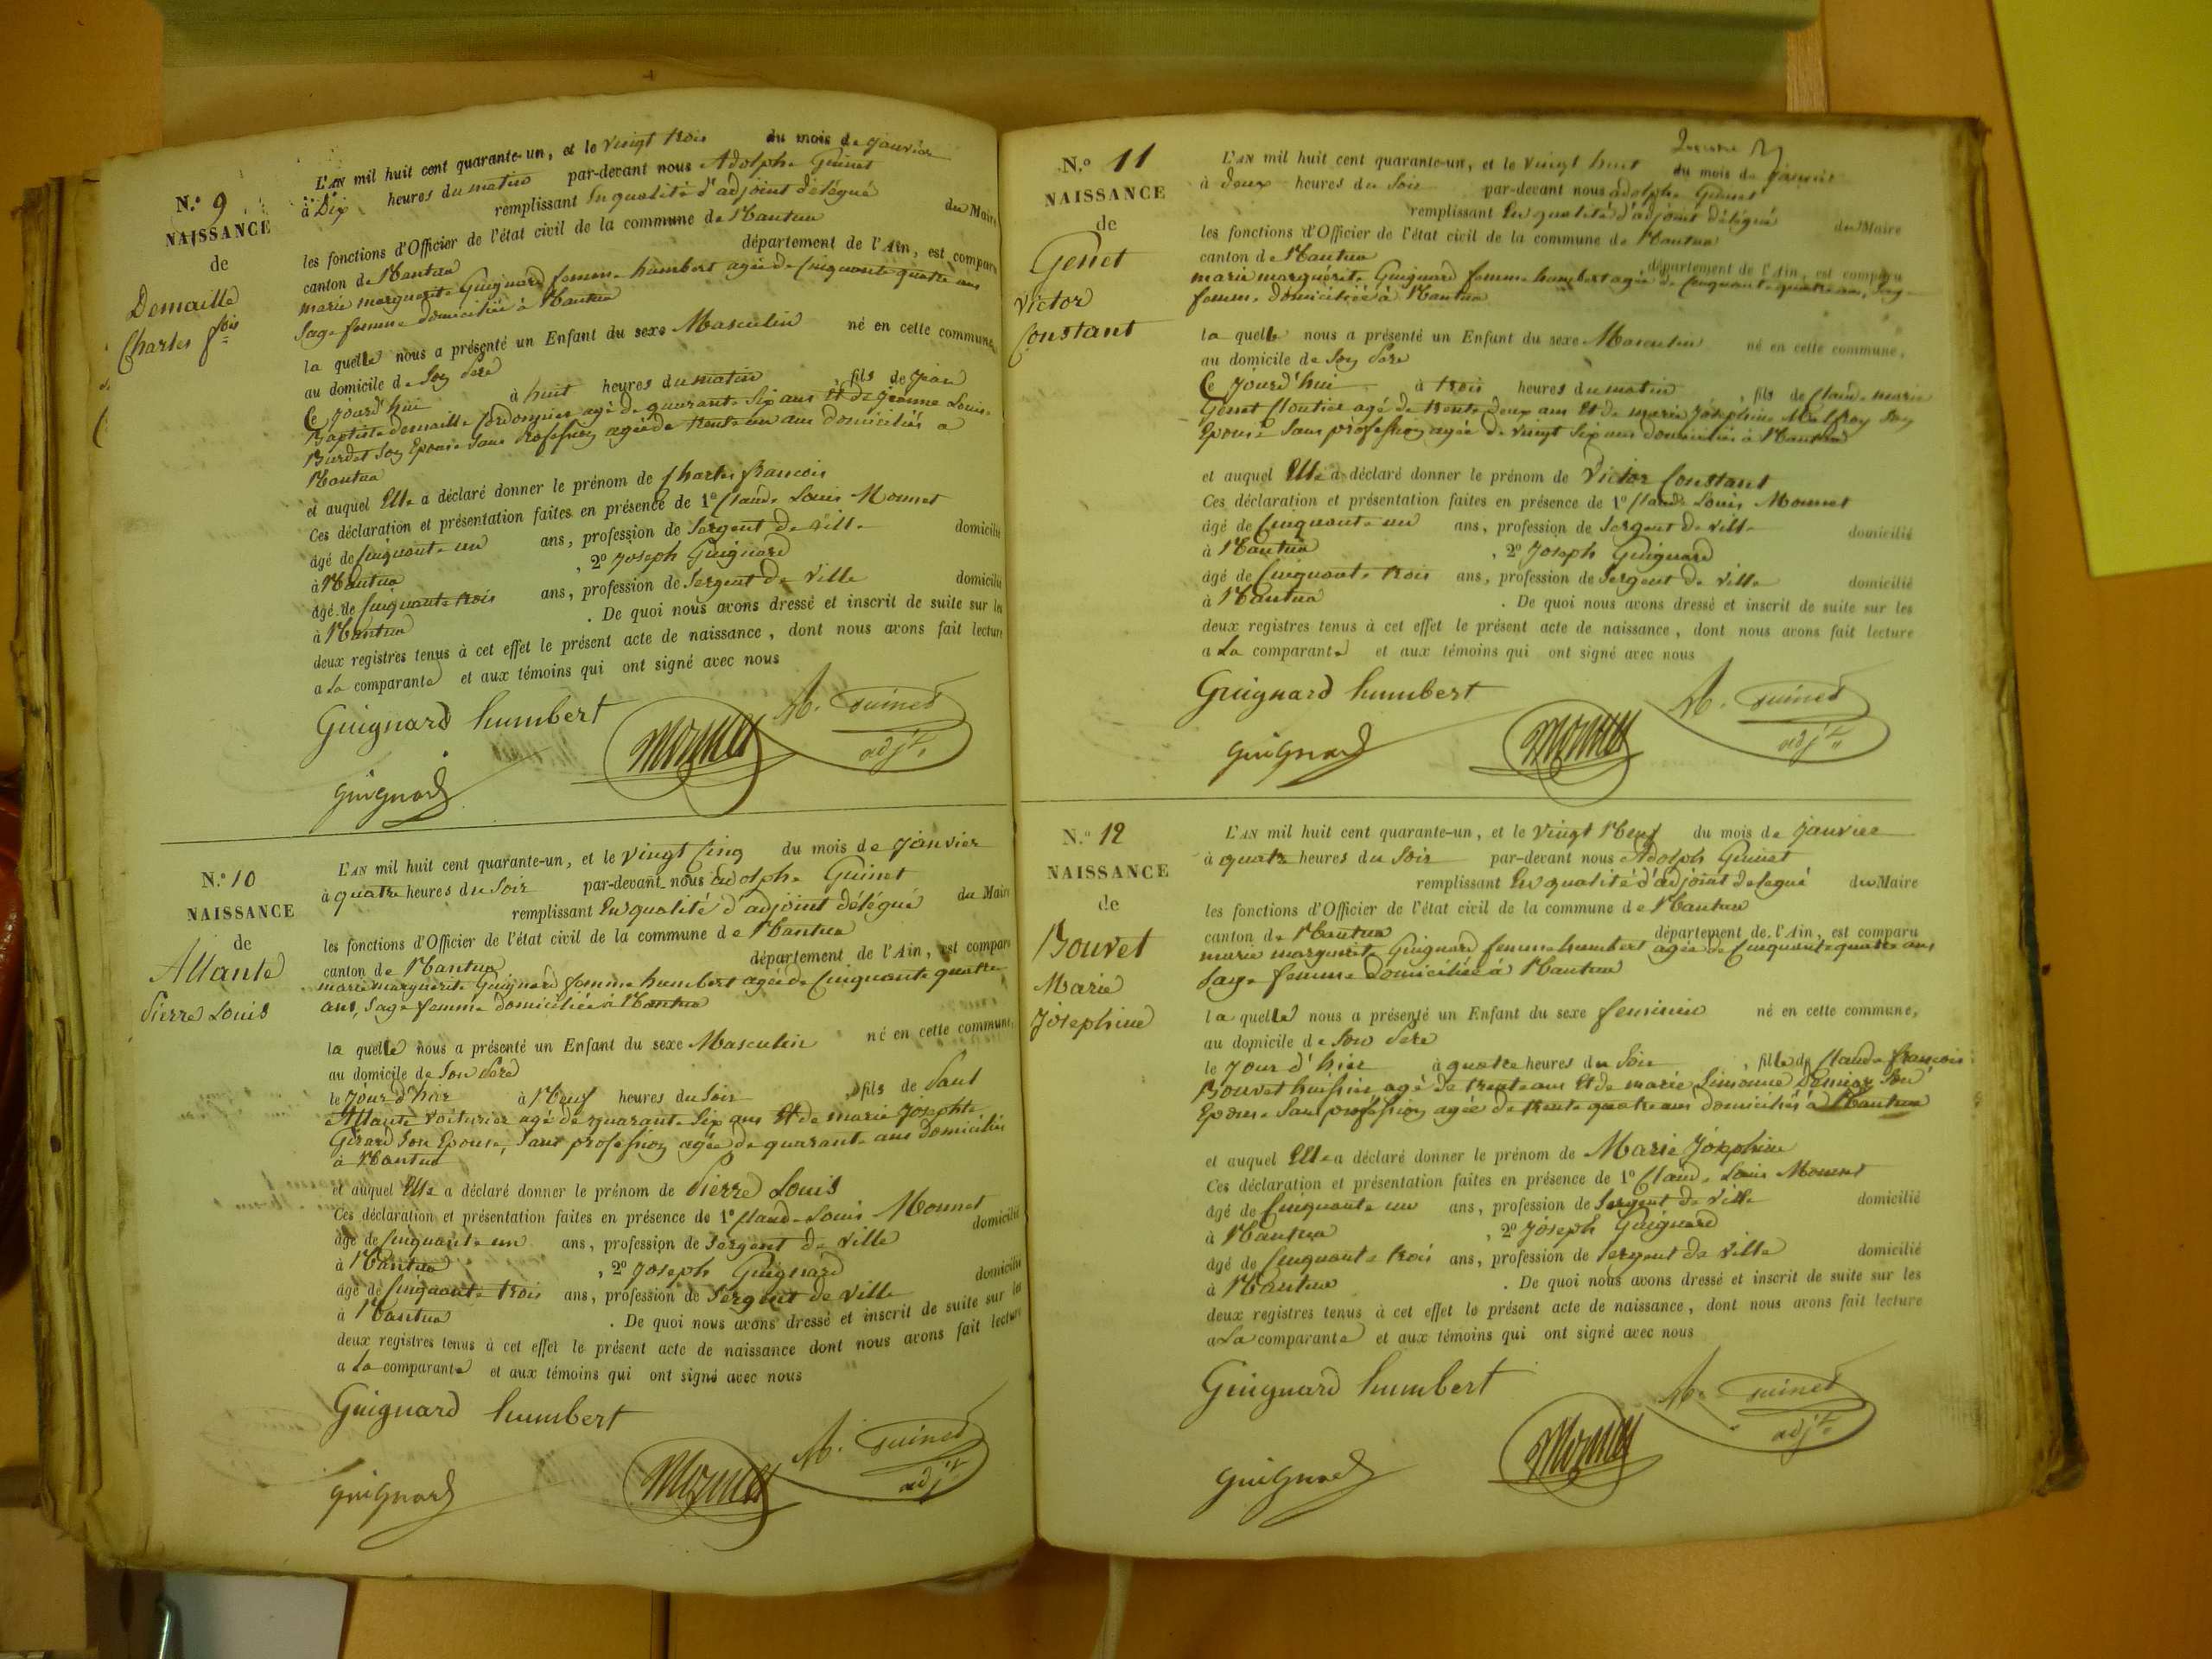 N.º 9
NAISSANCE
de
Demaille
Charles f.ois
L'AN mil huit cent quarante-un, et le vingt trois du mois de janvier
à Dix heures du matin par-devant nous Adolphe Guinet
remplissant En qualité d'adjoint délégué du Maire
les fonctions d'Officier de l'état civil de la commune de Nantua
canton de Nantua département de l'Ain, est comparu
marie marguerite Guignard femme humbert agée de Cinquante quatre ans
Sage femme domiciliée à Nantua
la quelle nous a présenté un Enfant du sexe Masculin né en cette commune,
au domicile de Son Père
Ce jourd'hui à huit heures du matin , fils de jean
Baptiste demaille Cordonnier agé de quarante Six ans Et de jeanne Louise
Burdet Son Epouse Sans profession agée de trente un ans domiciliés a
Nantua
et auquel Elle a déclaré donner le prénom de Charles francois
Ces déclaration et présentation faites en présence de 1º Claude Louis Monnet
âgé de Cinquante un ans, profession de Sergent de ville domicilié
à Nantua , 2º Joseph Guignard
âgé de Cinquante trois ans, profession de Sergent De Ville domicilié
à Nantua . De quoi nous avons dressé et inscrit de suite sur les
deux registres tenus à cet effet le présent acte de naissance, dont nous avons fait lecture
a La comparante et aux témoins qui ont signé avec nous
Guignard humbert
Monnet
A. Guinet
adj.t
Guignard
N.º 10
NAISSANCE
de
Allante
Pierre Louis
L'AN mil huit cent quarante-un, et le vingt Cinq du mois de janvier
à quatre heures du Soir par-devant nous adolphe Guinet
remplissant En qualité d'adjoint délégué du Maire
les fonctions d'Officier de l'état civil de la commune de Nantua
canton de Nantua département de l'Ain, est comparu
marie marguerite Guignard femme humbert agée de Cinquante quatre
ans, Sage femme domiciliée à Nantua
la quelle nous a présenté un Enfant du sexe Masculin né en cette commune,
au domicile de Son Père
le Jour d'hier à Neuf heures du Soir , fils de Paul
Allante voiturier agé de quarante Six ans Et de marie Josephte
Girard Son Epouse, Sans profession agée de quarante ans domiciliés
à Nantua
et auquel Elle a déclaré donner le prénom de Pierre Louis
Ces déclaration et présentation faites en présence de 1º Claude Louis Monnet
âgé de Cinquante un ans, profession de Sergent de ville domicilié
à Nantua , 2º Joseph Guignard
âgé de Cinquante trois ans, profession de Sergent de Ville domicilié
à Nantua . De quoi nous avons dressé et inscrit de suite sur les
deux registres tenus à cet effet le présent acte de naissance dont nous avons fait lecture
a La comparante et aux témoins qui ont signé avec nous
Guignard humbert
A. Guinet
adj.t
Guignard
Monnet
N.º 11
NAISSANCE
de
Genet
Victor
Constant
L'AN mil huit cent quarante-un, et le vingt huit du mois de janvier
à deux heures du Soir par-devant nous adolphe Guinet
remplissant En qualité d'adjoint délégué du Maire
les fonctions d'Officier de l'état civil de la commune de Nantua
canton de Nantua département de l'Ain, est comparu
marie marguérite Guignard femme humbert agée de Cinquante quatre ans, Sage
femme domiciliée à Nantua
la quelle nous a présenté un Enfant du sexe Masculin né en cette commune,
au domicile de Son Père
Ce Jourd'hui à trois heures du matin , fils de Claude marie
Genet Cloutier agé de trente deux ans Et de marie Josephine Malfroy Son
Epouse Sans profession agée de vingt Six ans domiciliés à Nantua
et auquel Elle a déclaré donner le prénom de Victor Constant
Ces déclaration et présentation faites en présence de 1º Claude Louis Monnet
âgé de Cinquante un ans, profession de Sergent de ville domicilié
à Nantua , 2º Joseph Guignard
âgé de Cinquante trois ans, profession de Sergent de Ville domicilié
à Nantua . De quoi nous avons dressé et inscrit de suite sur les
deux registres tenus à cet effet le présent acte de naissance, dont nous avons fait lecture
a La comparante et aux témoins qui ont signé avec nous
Guignard humbert
A. Guinet
adj.t
Guignard
Monnet
N.º 12
NAISSANCE
de
Bouvet
Marie
Josephine
L'AN mil huit cent quarante-un, et le vingt Neuf du mois de janvier
à quatre heures du Soir par-devant nous Adolph Guinet
remplissant En qualité d'adjoint delegué du Maire
les fonctions d'Officier de l'état civil de la commune de Nantua
canton de Nantua département de l'Ain, est comparu
marie marguerite Guignard femme humbert agée de Cinquante quatre ans
Sage femme domiciliée à Nantua
la quelle nous a présenté un Enfant du sexe feminin né en cette commune,
au domicile de Son Père
le Jour d'hier à quatre heures du Soir , fille de Claude françois
Bouvet huissier agé de trente ans Et de marie Simonne Son
Epouse Sans profession agée de trente quatre ans domiciliés à Nantua
et auquel Elle a déclaré donner le prénom de Marie Joséphine
Ces déclaration et présentation faites en présence de 1º Claude Louis Monnet
âgé de Cinquante un ans, profession de Sergent de Ville domicilié
à Nantua , 2º Joseph Guignard
âgé de Cinquante trois ans, profession de Sergent de Ville domicilié
à Nantua . De quoi nous avons dressé et inscrit de suite sur les
deux registres tenus à cet effet le présent acte de naissance, dont nous avons fait lecture
a La comparante et aux témoins qui ont signé avec nous
Guignard humbert
A. Guinet
adj.t
Guignard
Monnet